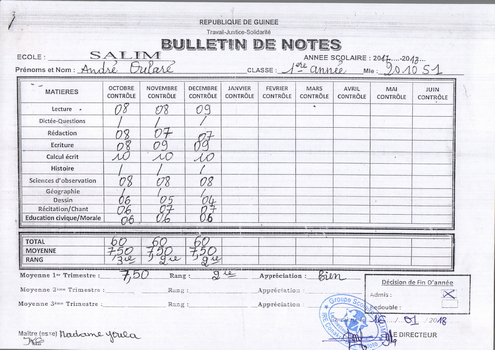 REPUBLIQUE DE GUINEE
Travail-Justice-Solidarité
BULLETIN DE NOTES
ECOLE : SALIM ANNEE SCOLAIRE : 2017 - 2018
Prénoms et Nom : André Oularé CLASSE : 1ère année Mle : 201051
MATIERES OCTOBRE CONTRÔLE NOVEMBRE CONTRÔLE DECEMBRE CONTRÔLE JANVIER CONTRÔLE FEVRIER CONTRÔLE MARS CONTRÔLE AVRIL CONTRÔLE MAI CONTRÔLE JUIN CONTRÔLE
Lecture 08 08 09
Dictée-Questions / / /
Rédaction 08 07 07
Ecriture 08 09 09
Calcul écrit 10 10 10
Histoire / / /
Sciences d'observation 08 08 08
Géographie / / /
Dessin 06 05 04
Récitation/Chant 06 07 07
Education civique/Morale 06 06 06
TOTAL 60 60 60
MOYENNE 7,50 7,50 7,50
RANG 3è 2è 2è
Moyenne 1er Trimestre : 7,50 Rang : 2è Appréciation : bien
Moyenne 2ème Trimestre : Rang : Appréciation :
Moyenne 3ème Trimestre : Rang : Appréciation :
Décision de Fin D'année
Admis : X
Redouble :
Groupe Scolaire
16 01 2018
Maître (esse) Madame Youla LE DIRECTEUR